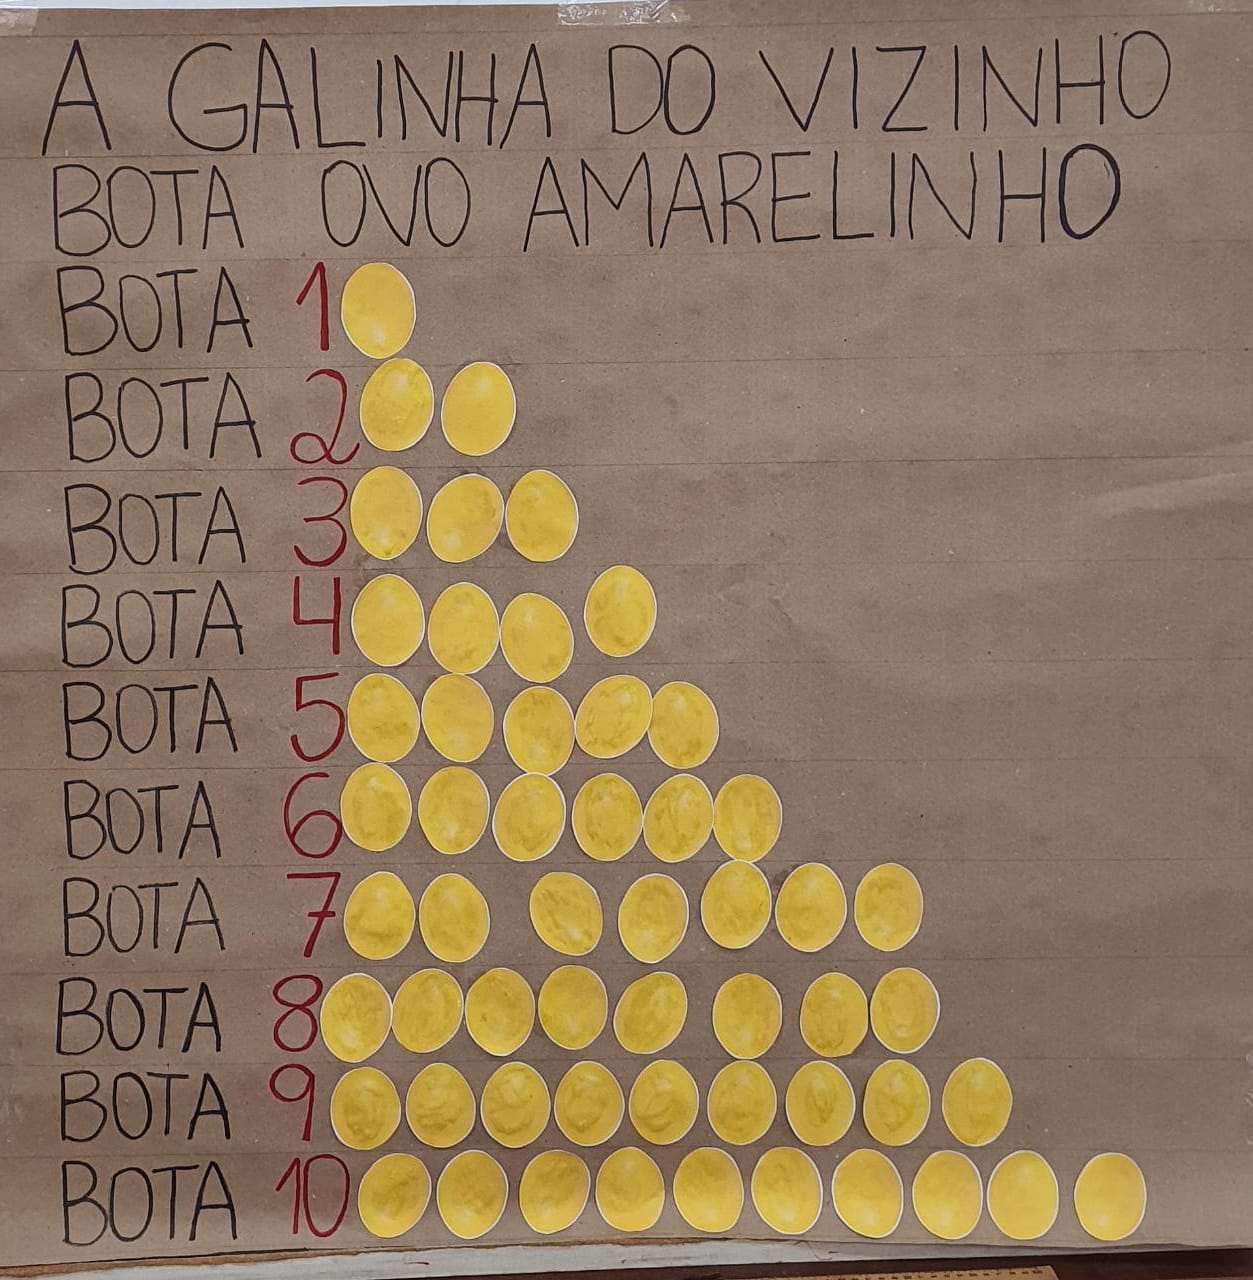 A GALINHA DO VIZINHO
BOTA OVO AMARELINHO
BOTA 1
BOTA 2
BOTA 3
BOTA 4
BOTA 5
BOTA 6
BOTA 7
BOTA 8
BOTA 9
BOTA 10